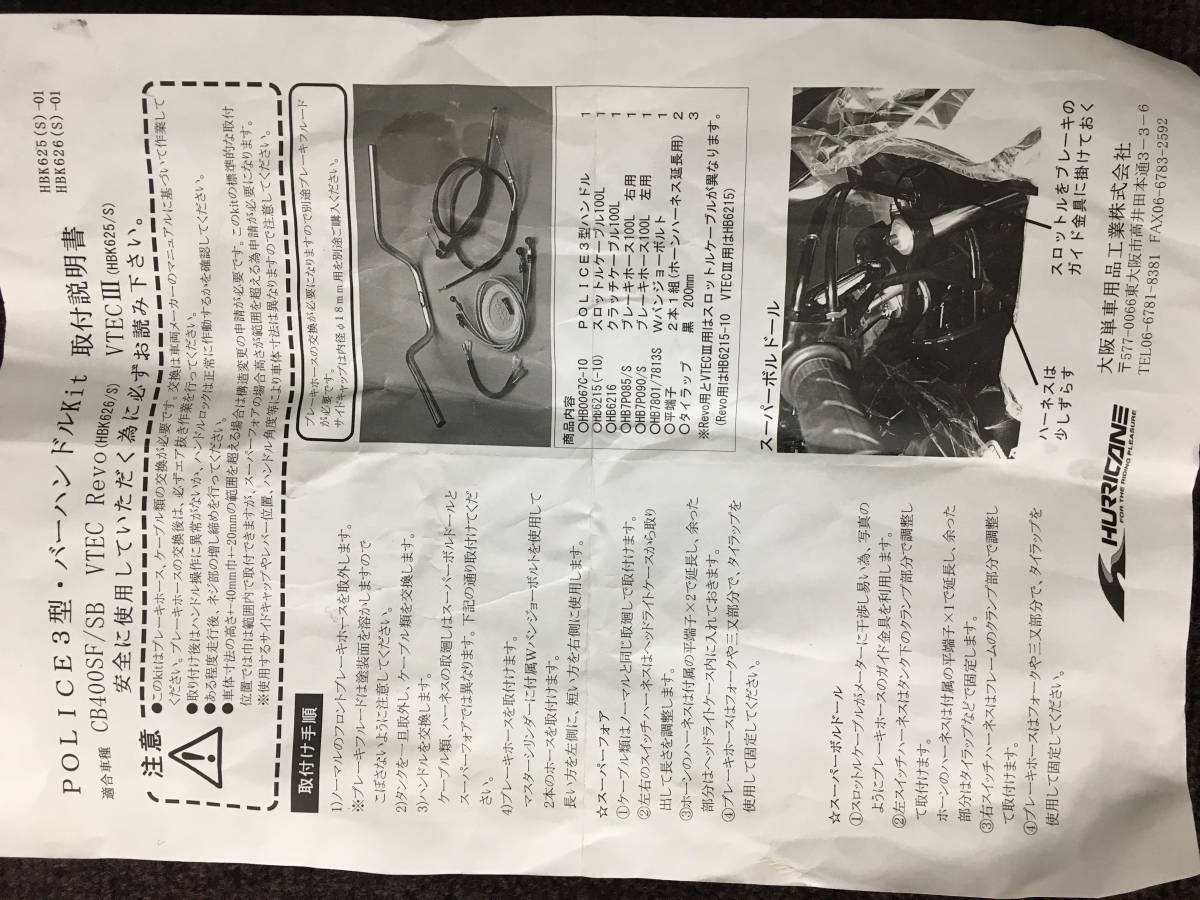 POLICE3型・バーハンドルKit 取付説明書
HBK625(S)-01
HBK626(S)-01
適合車種 CB400SF/SB VTEC Revo(HBK626/S) VTECⅢ(HBK625/S)
安全に使用していただく為に必ずお読み下さい。
注意
●このkitはブレーキホース、ケーブル類の交換が必要です。交換は車両メーカーのマニュアルに基づいて作業して
ください。ブレーキホースの交換後は、必ずエア抜き作業を行ってください。
●取り付け後はハンドル操作に異常がないか、ハンドルロックは正常に作動するかを確認してください。
●ある程度走行後、ネジ部の増し締めを行ってください。
●車体寸法の高さ+-40mm巾+-20mmの範囲を超える場合は構造変更の申請が必要です。このkitの標準的な取付
位置では巾は範囲内で取付できますが、スーパーフォアの場合高さが範囲を超える為申請が必要になります。
※使用するサイドキャップやレバー位置、ハンドル角度等により車体寸法は異なりますので注意してください。
取付け手順
1)ノーマルのフロントブレーキホースを取外します。
※ブレーキフルードは塗装面を溶かしますので
こぼさないように注意してください。
2)タンクを一旦取外し、ケーブル類を交換します。
3)ハンドルを交換します。
ケーブル類、ハーネスの取廻しはスーパーボルドールと
スーパーフォアでは異なります。下記の通り取付けてくだ
さい。
4)ブレーキホースを取付けます。
マスターシリンダーに付属Wバンジョーボルトを使用して
2本のホースを取付けます。
長い方を左側に、短い方を右側に使用します。
☆スーパーフォア
①ケーブル類はノーマルと同じ取廻しで取付けます。
②左右のスイッチハーネスはヘッドライトケースから取り
出して長さを調整します。
③ホーンのハーネスは付属の平端子×2で延長し、余った
部分はヘッドライトケース内に入れておきます。
④ブレーキホースはフォークや三又部分で、タイラップを
使用して固定してください。
☆スーパーボルドール
①スロットルケーブルがメーターに干渉し易い為、写真の
ようにブレーキホースのガイド金具を利用します。
②左スイッチハーネスはタンク下のクランプ部分で調整し
て取付けます。
ホーンのハーネスは付属の平端子×1で延長し、余った
部分はタイラップなどで固定します。
③右スイッチハーネスはフレームのクランプ部分で調整し
て取付けます。
④ブレーキホースはフォークや三又部分で、タイラップを
使用して固定してください。
ブレーキホースの交換が必要になりますので別途ブレーキフルード
が必要です。
サイドキャップは内径φ18mm用を別途ご購入ください。
商品内容
○HB0067C-10 POLICE3型ハンドル 1
○HB6215(-10) スロットルケーブル100L 1
○HB6216 クラッチケーブル100L 1
○HB7P085/S ブレーキホース100L 右用 1
○HB7P090/S ブレーキホース100L 左用 1
○HB7801/7813S Wバンジョーボルト 1
○平端子 2本1組(ホーンハーネス延長用) 2
○タイラップ 黒 200mm 3
※Revo用とVTECⅢ用はスロットルケーブルが異なります。
(Revo用はHB6215-10 VTECⅢ用はHB6215)
スーパーボルドール
ハーネスは
少しずらす
スロットルをブレーキの
ガイド金具に掛けておく
HURRICANE
FOR THE RIDING PLEASURE
大阪単車用品工業株式会社
〒577-0066東大阪市高井田本通3-3-6
TEL06-6781-8381 FAX06-6783-2592